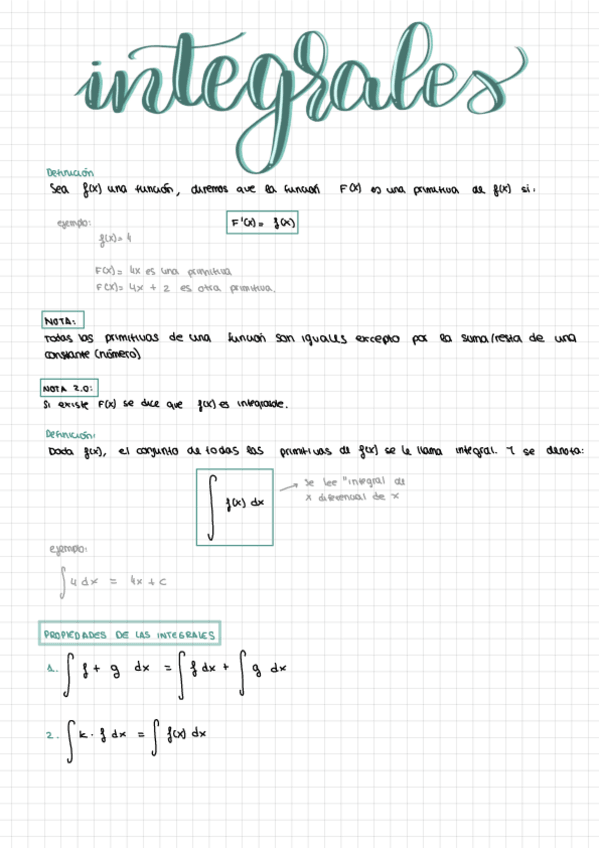 integrales
Definición
Sea f(x) una función, diremos que la función F(x) es una primitiva de f(x) si:
ejemplo:
F'(x) = f(x)
f(x)= 4
F(x)= 4x es una primitiva
F(x)= 4x + 2 es otra primitiva.
NOTA:
Todas las primitivas de una función son iguales excepto por la suma/resta de una
constante (número)
NOTA 2.0:
Si existe F(x) se dice que f(x) es integrable.
Definición:
Dada f(x), el conjunto de todas las primitivas de f(x) se le llama integral. Y se denota:
∫ f(x) dx
→ Se lee "integral de
x diferencial de x
ejemplo:
∫ 4 dx = 4x + c
PROPIEDADES DE LAS INTEGRALES
1. ∫ f + g dx = ∫ f dx + ∫ g dx
2. ∫ k · f dx = ∫ f(x) dx